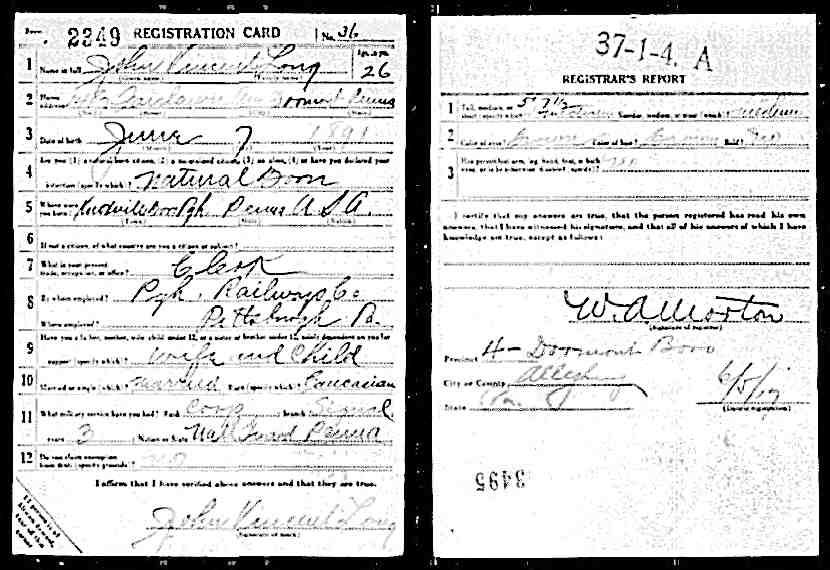 Form 2349 REGISTRATION CARD No. 36
1 Name in full John Vincent Long Age, in yrs. 26
2 Home address Dormont Penna
3 Date of birth June 7 1891
4 Are you (1) a natural born citizen, (2) a naturalized citizen, (3) an alien, (4) or have you declared your
intention (specify which)? Natural Born
5 Where were you born? Knoxville boro Pgh Penna U.S.A.
(Town) (State) (Nation)
6 If not a citizen, of what country are you a citizen or subject?
7 What is your present trade, occupation, or office? Clerk
8 By whom employed? Pgh. Railways Co
Where employed? Pittsburgh Pa.
9 Have you a father, mother, wife, child under 12, or a sister or brother under 12, solely dependent on you for
support (specify which)? Wife and Child
10 Married or single (which)? Married Race (specify which)? Caucasian
11 What military service have you had? Rank Corp ; branch Signal
years 3 ; Nation or State Nat Guard Penna
12 Do you claim exemption from draft (specify grounds)? no
I affirm that I have verified above answers and that they are true.
John Vincent Long
(Signature or mark)
If person is of African descent, tear off this corner
37-1-4. A
REGISTRAR'S REPORT
1 Tall, medium, or short (specify which)? 5 7 1/2 Slender, medium, or stout (which)? medium
2 Color of eyes? Brown Color of hair? Brown Bald? No
3 Has person lost arm, leg, hand, foot, or both eyes, or is he otherwise disabled (specify)? no
I certify that my answers are true, that the person registered has read his own
answers, that I have witnessed his signature, and that all of his answers of which I have
knowledge are true, except as follows:
W. A. Morton
(Signature of registrar)
Precinct 4 - Dormont Boro
City or County Allegheny
State Pa. 6/5/17
(Date of registration)
3495